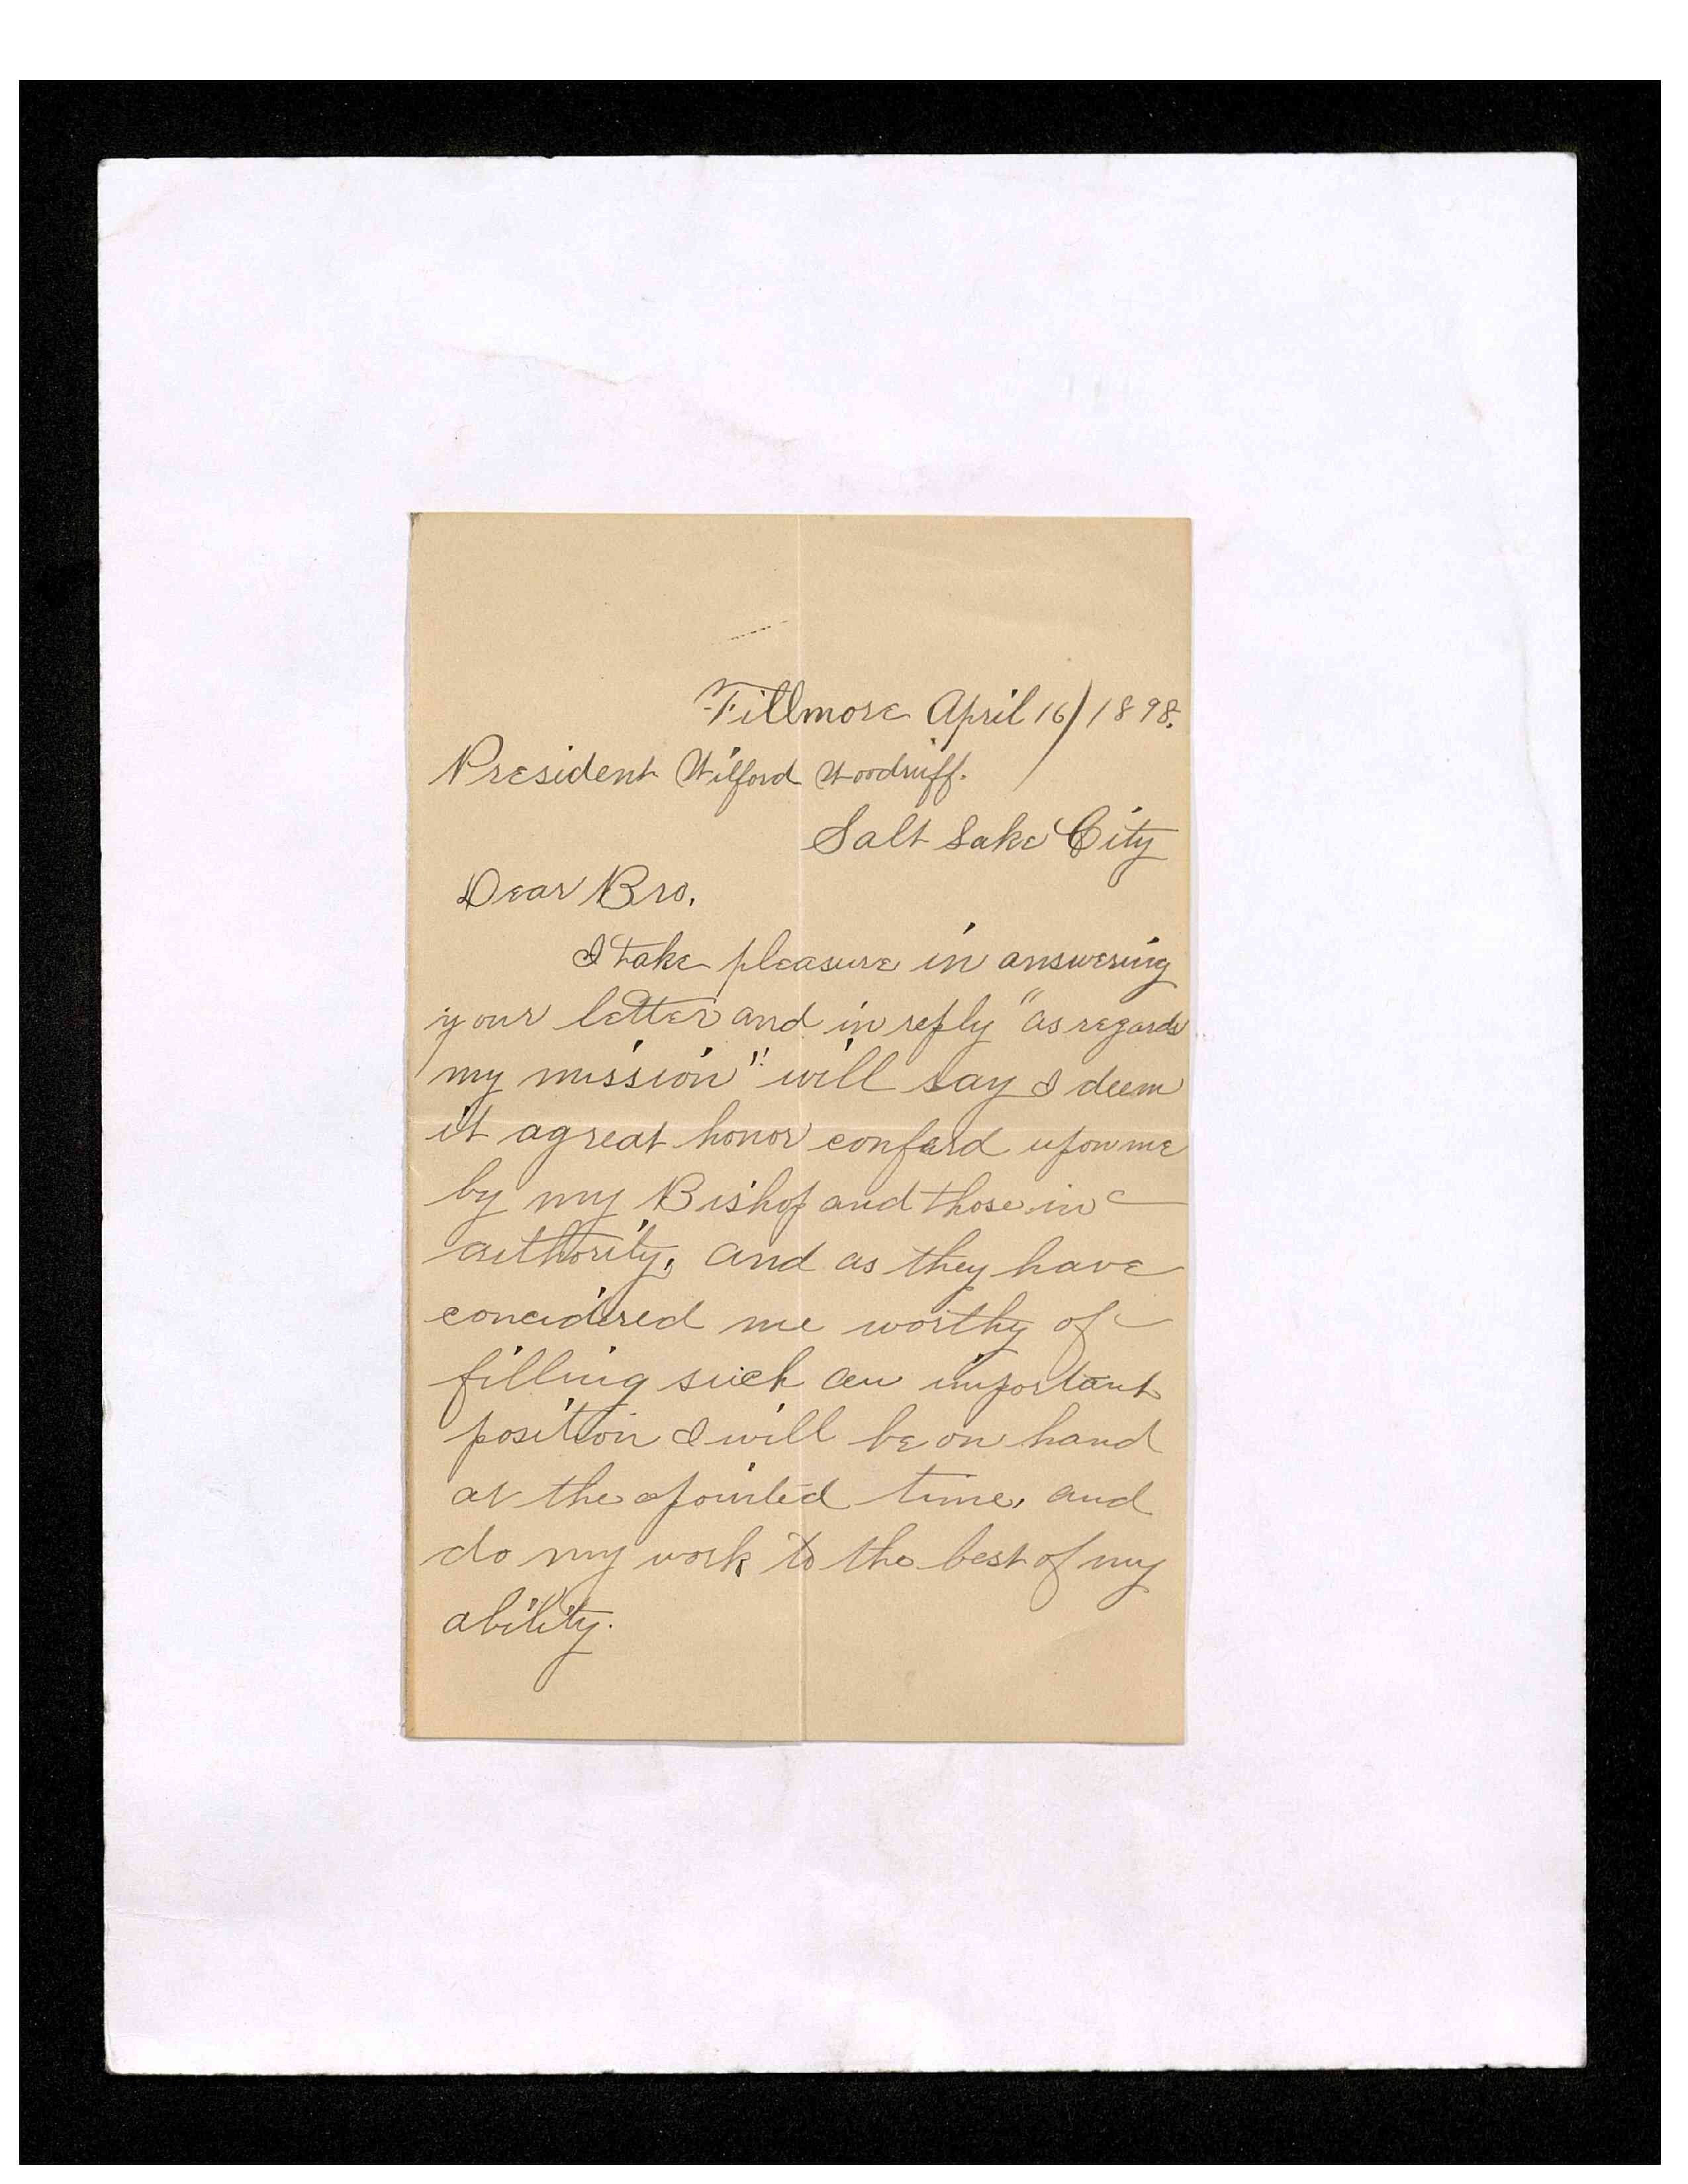 Fillmore April 16/1898.
President Wilford Woodruff.
Salt Lake City
Dear Bro.
I take pleasure in answering
your letter and in reply "as regards
my mission" will say I deem
it a great honor conferd upon me
by my Bishop and those in
authority, and as they have
concidered me worthy of
filling such an important
position I will be on hand
at the apointed time, and
do my work to the best of my
ability.